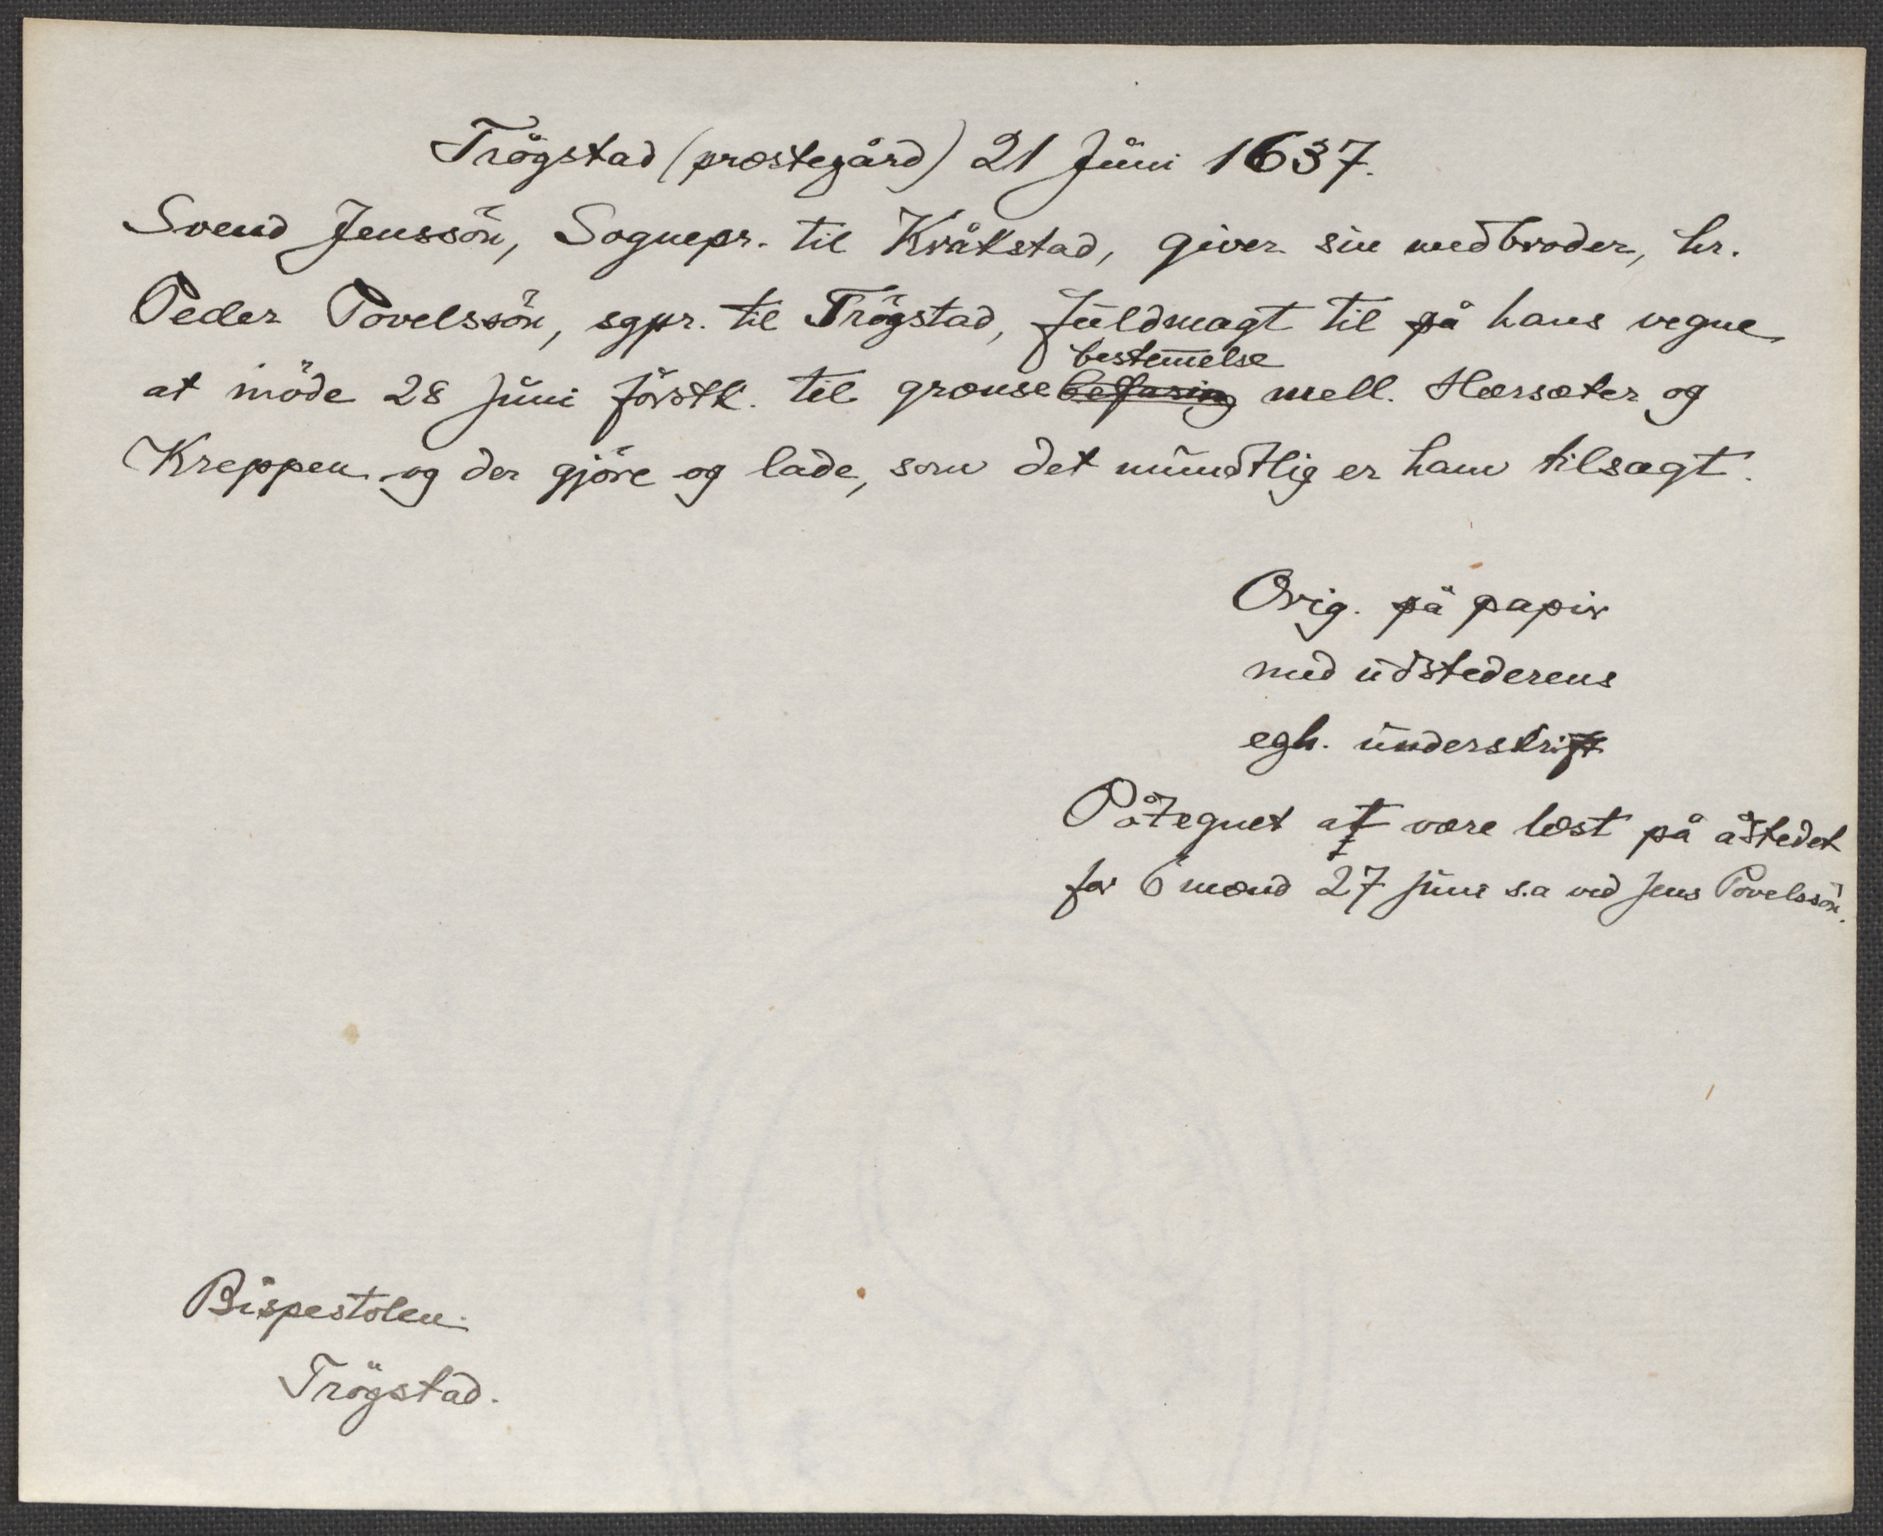 Trögstad (præstegård) 21 Juni 1637.
Svend Jenssön, Sognepr. til Kråkstad, giver sin medbroder, hr.
Peder Povelssön, sgpr. til Trögstad, fuldmagt til på hans vegne
at möde 28 Juni förstk. til grænsebestem̅else befaring mell. Hærsæter og
Kreppen og der gjöre og lade, som det mundtlig er ham tilsagt.
Orig. på papir
med udstederens
egh. underskrift
Påtegnet at være læst på åstedet
for 6 mænd 27 juni s.a ved Jens Povelssön.
Bispestolen.
Trögstad.